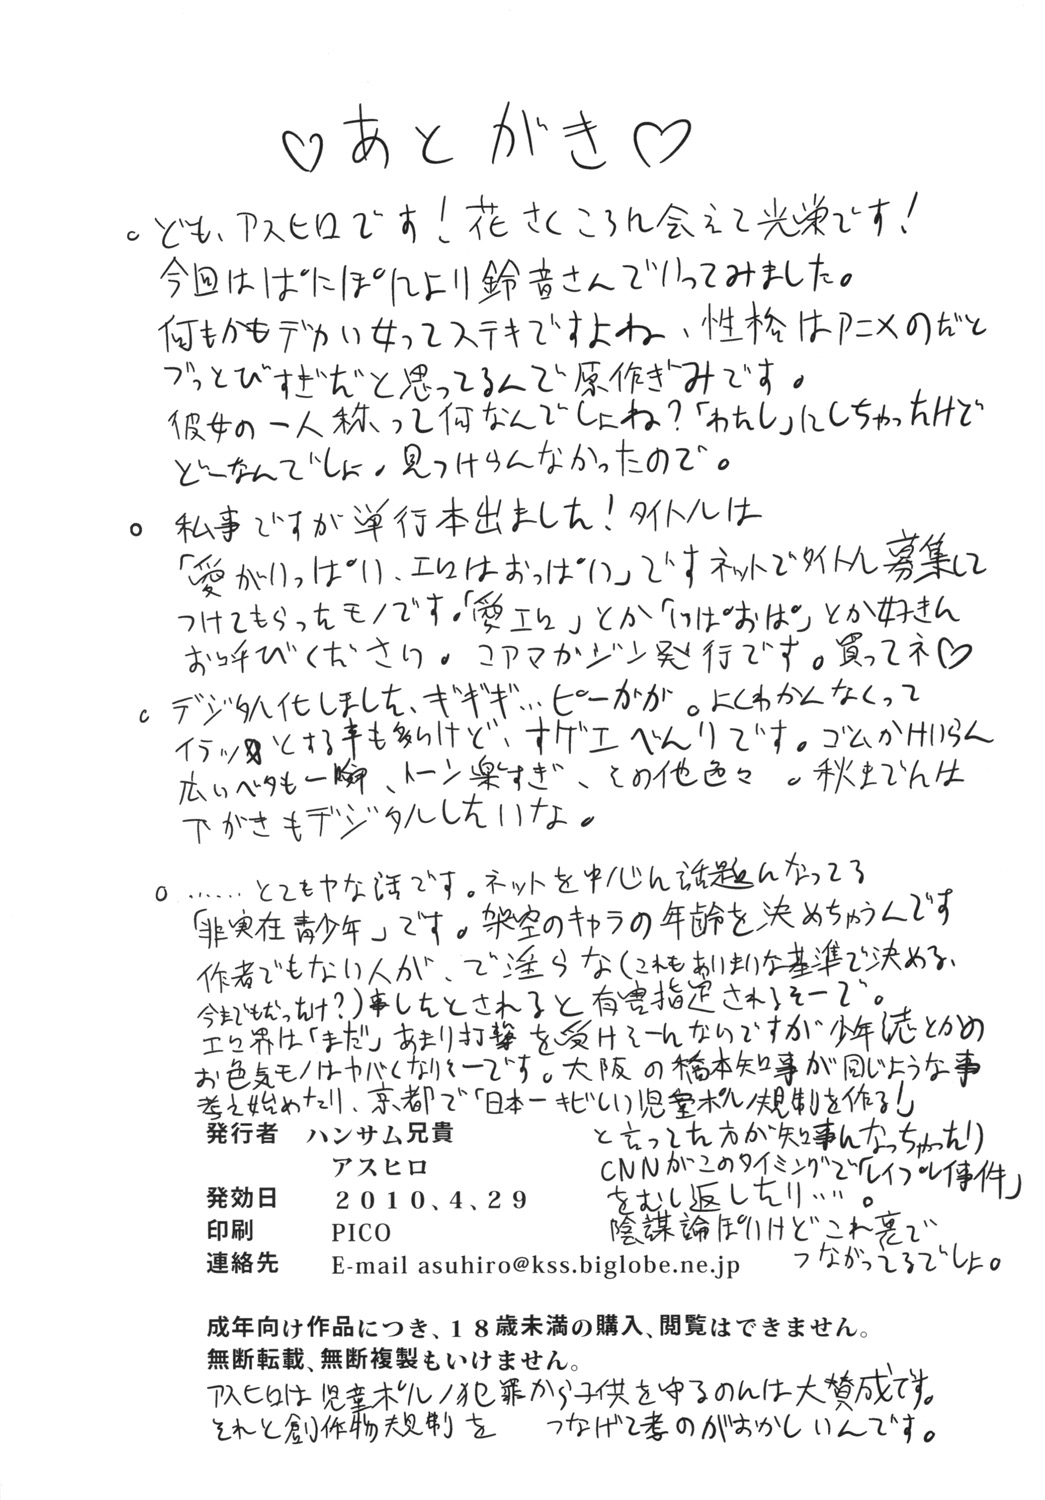 ♡あとがき♡
○ ども、アスヒロです!花さくころに会えて光栄です!
今回はぱにぽにより鈴音さんでいってみました。
何もかもデカい女ってステキですよね、性格はアニメのだと
ブっとびすぎだと思ってるんで原作ぎみです。
彼女の一人称って何なんでしょね?「わたし」にしちゃったけど
どーなんでしょ。見つけらんなかったので。
○ 私事ですが単行本出ました!タイトルは
「愛がいっぱい、エロはおっぱい」ですネットでタイトル募集して
つけてもらったモノです。「愛エロ」とか「いぱおぱ」とか好きに
お呼びください。コアマガジン発行です。買ってネ♡
○ デジタル化しました、ギギギ…ピーガガ。よくわかんなくって
イラッとする事も多いけど、すゲエべんりです。ゴムかけいらん
広いベタも一瞬、トーン楽すぎ、その他色々。秋までんは
下がきもデジタルしたいな。
○ ……とてもヤな話です。ネットを中心に話題になってる
「非実在青少年」です。架空のキャラの年齢を決めちゃうんです
作者でもない人が、で淫らな(これもあいまいな基準で決める、
今までもだったけ?)事したとされると有害指定されるそーで。
エロ界は「まだ」あまり打撃を受けそーにないですが少年誌とかの
お色気モノはヤバくなりそーです。大阪の橋本知事が同じような事
考え始めたり、京都で「日本一キビしい児童ポルノ規制を作る!」
と言ってた方が知事になっちゃったり
CNNがこのタイミングで「レイプレイ事件」
をむし返したり…。
陰謀論ぽいけどこれ裏で
つながってるでしょ。
発行者 ハンサム兄貴
アスヒロ
発効日 2010、4、29
印刷 PICO
連絡先 E-mail asuhiro@kss.biglobe.ne.jp
成年向け作品につき、18歳未満の購入、閲覧はできません。
無断転載、無断複製もいけません。
アスヒロは児童ポルノ犯罪から子供を守るのんは大賛成です。
それと創作物規制を つなげて考のがおかしいんです。